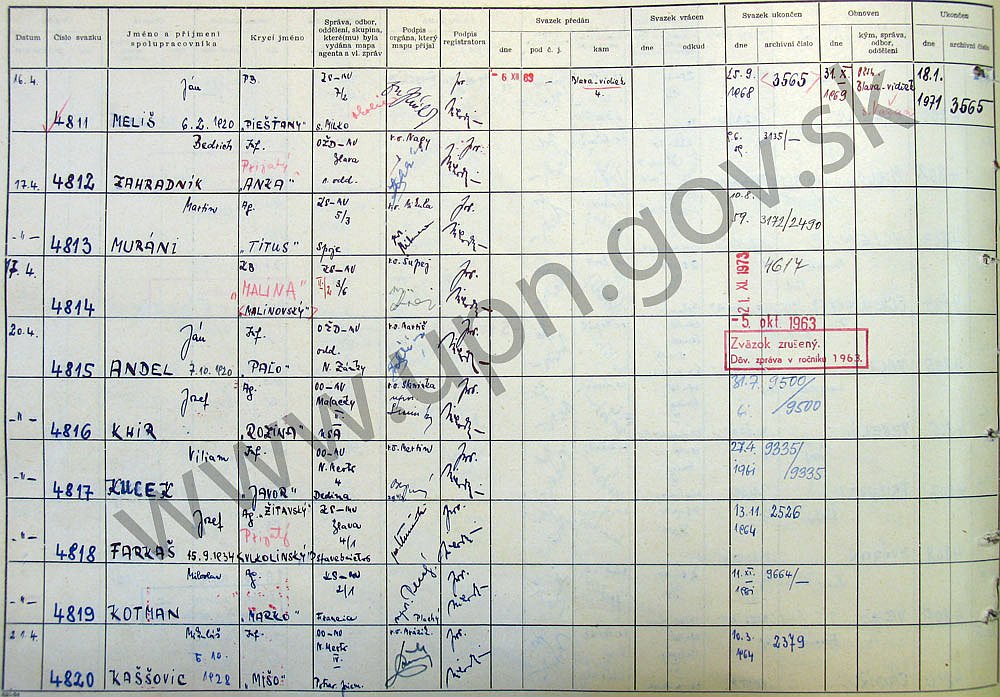 Datum
Číslo svazku
Jméno a příjmení spolupracovníka
Krycí jméno
Správa, odbor, oddělení, skupina, které(mu) byla vydána mapa agenta a vl. zpráv
Podpis orgána, který mapu přijal
Podpis registratora
Svazek předán
dne
pod č. j.
kam
Svazek vrácen
dne
odkud
Svazek ukončen
dne
archivní číslo
Obnoven
dne
kým, správa, odbor, oddělení
Ukončen
dne
archivní číslo
16.4.
4811
Ján
MELIŠ 6.2.1920
PB.
„PIEŠŤANY"
ZS-AV
7/2
s. Mitko
- 6 XII 69
Blava-vidiek
4.
25.9.
1968
3565
31. X.
1969
Blava-vidiek
18.1.
1971
3565
17.4.
4812
Bedrich
ZAHRADNÍK
Inf.
Prijatý
„ANZA"
OŽD-AV
Blava
1. odd.
v.o. Nagy
3135/-
-„-
4813
Martin
MURÁNI
Ag.
„TITUS"
ZS-AV
5/3
Spoje
v.o. Mikula
10.8.
59.
3172/2490
17.4.
4814
ZB
„MALINA"
(MALINOVSKÝ")
ZS-AV
3/6
v.o. Supej
21. XI 1973
4617
20.4.
4815
Ján
ANDEL 7.10.1920
Inf.
„PAĽO"
OŽD-AV
odd.
N. Zámky
-5. okt. 1963
Zväzok zrušený.
Dôv. zpráva v ročníku 1963.
-„-
4816
Jozef
KHIR
Ag.
„ROZINA"
OO-AV
Malacky
II.
31.7.
9500/
/9500
-„-
4817
Viliam
KUCEK
Inf.
„JAVOR"
OO-AV
N. Mesto
4
Dedina
v.o. Martin
27.4.
1961
9335/
/9335
-„-
4818
Jozef
FARKAŠ 15.9.1934
Ag. „ŽITAVSKÝ"
Prijatý
„VLKOLINSKÝ"
ZS-AV
Blava
4/1
13.11
1964
2526
-„-
4819
Miloslav
KOTMAN
Ag.
„MARKO"
ZS-AV
2/1
Francia
11. XI.
1961
9664/-
21.4.
4820
Mikuláš
KAŠŠOVIC 5.10. 1928
Inf.
„MIŠO"
OO-AV
N. Mesto
IV.
10.3.
1964
2379
www.upn.gov.sk